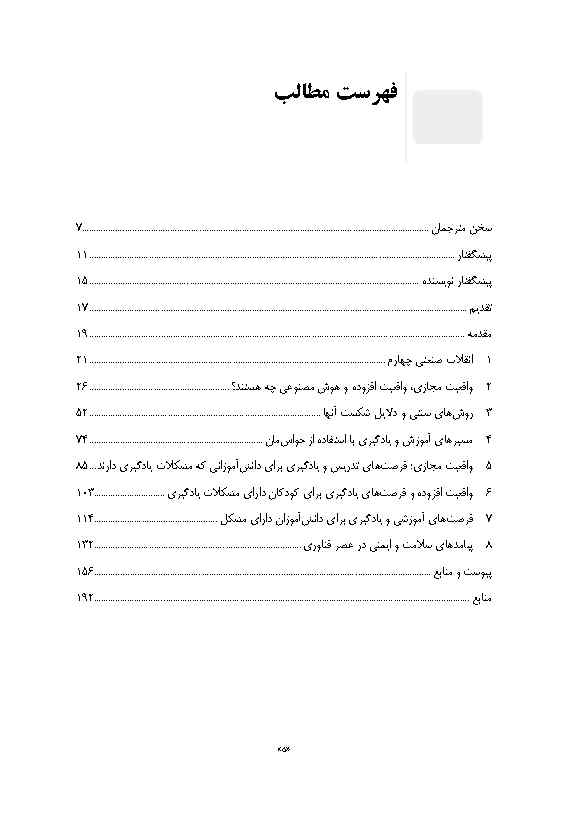 فهرست مطالب
سخن مترجمان ۷
پیشگفتار ۱۱
پیشگفتار نویسنده ۱۵
تقدیم ۱۷
مقدمه ۱۹
۱ انقلاب صنعتی چهارم ۲۱
۲ واقعیت مجازی، واقعیت افزوده و هوش مصنوعی چه هستند؟ ۲۶
۳ روش‌های سنتی و دلایل شکست آنها ۵۲
۴ مسیرهای آموزش و یادگیری با استفاده از حواس‌مان ۷۴
۵ واقعیت مجازی: فرصت‌های تدریس و یادگیری برای دانش‌آموزانی که مشکلات یادگیری دارند ۸۵
۶ واقعیت افزوده و فرصت‌های یادگیری برای کودکان دارای مشکلات یادگیری ۱۰۳
۷ فرصت‌های آموزشی و یادگیری برای دانش‌آموزان دارای مشکل ۱۱۴
۸ پیامدهای سلامت و ایمنی در عصر فناوری ۱۳۲
پیوست و منابع ۱۵۶
منابع ۱۹۲
«۵»